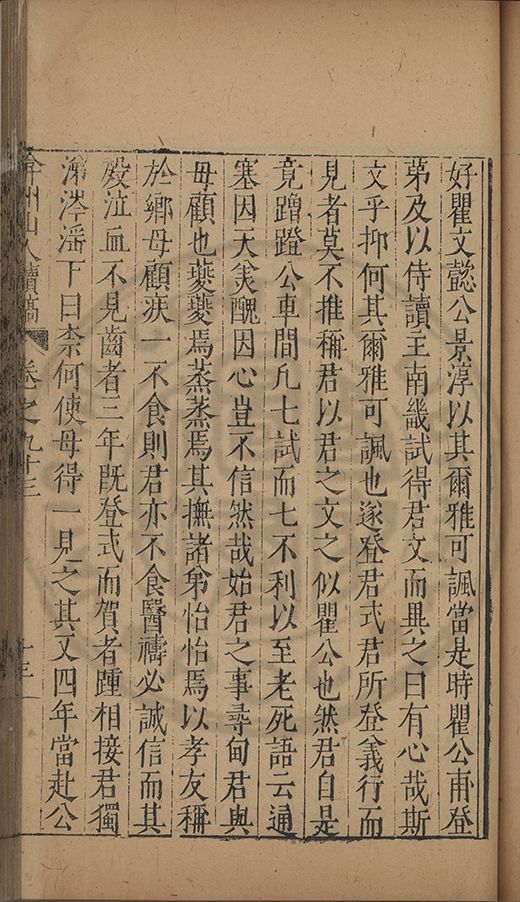 好瞿文懿公景淳以其爾雅可諷當是時瞿公甫登
第及以侍讀主南畿試得君文而異之曰有心哉斯
文乎抑何其爾雅可諷也遂登君式君所登義行而
見者莫不推稱君以君之文之似瞿公也然君自是
竟蹭蹬公車間凡七試而七不利以至老死語云通
塞因天美醜因心豈不信然哉始君之事尋甸君與
母顧也夔夔焉蒸蒸焉其撫諸弟怡怡焉以孝友稱
於鄉母顧疾一不食則君亦不食醫禱必誠信而其
歿泣血不見齒者三年既登式而賀者踵相接君獨
涕涔滛下曰柰何使母得一見之其又四年當赴公
弇州山人續稿 卷之九十三 十三